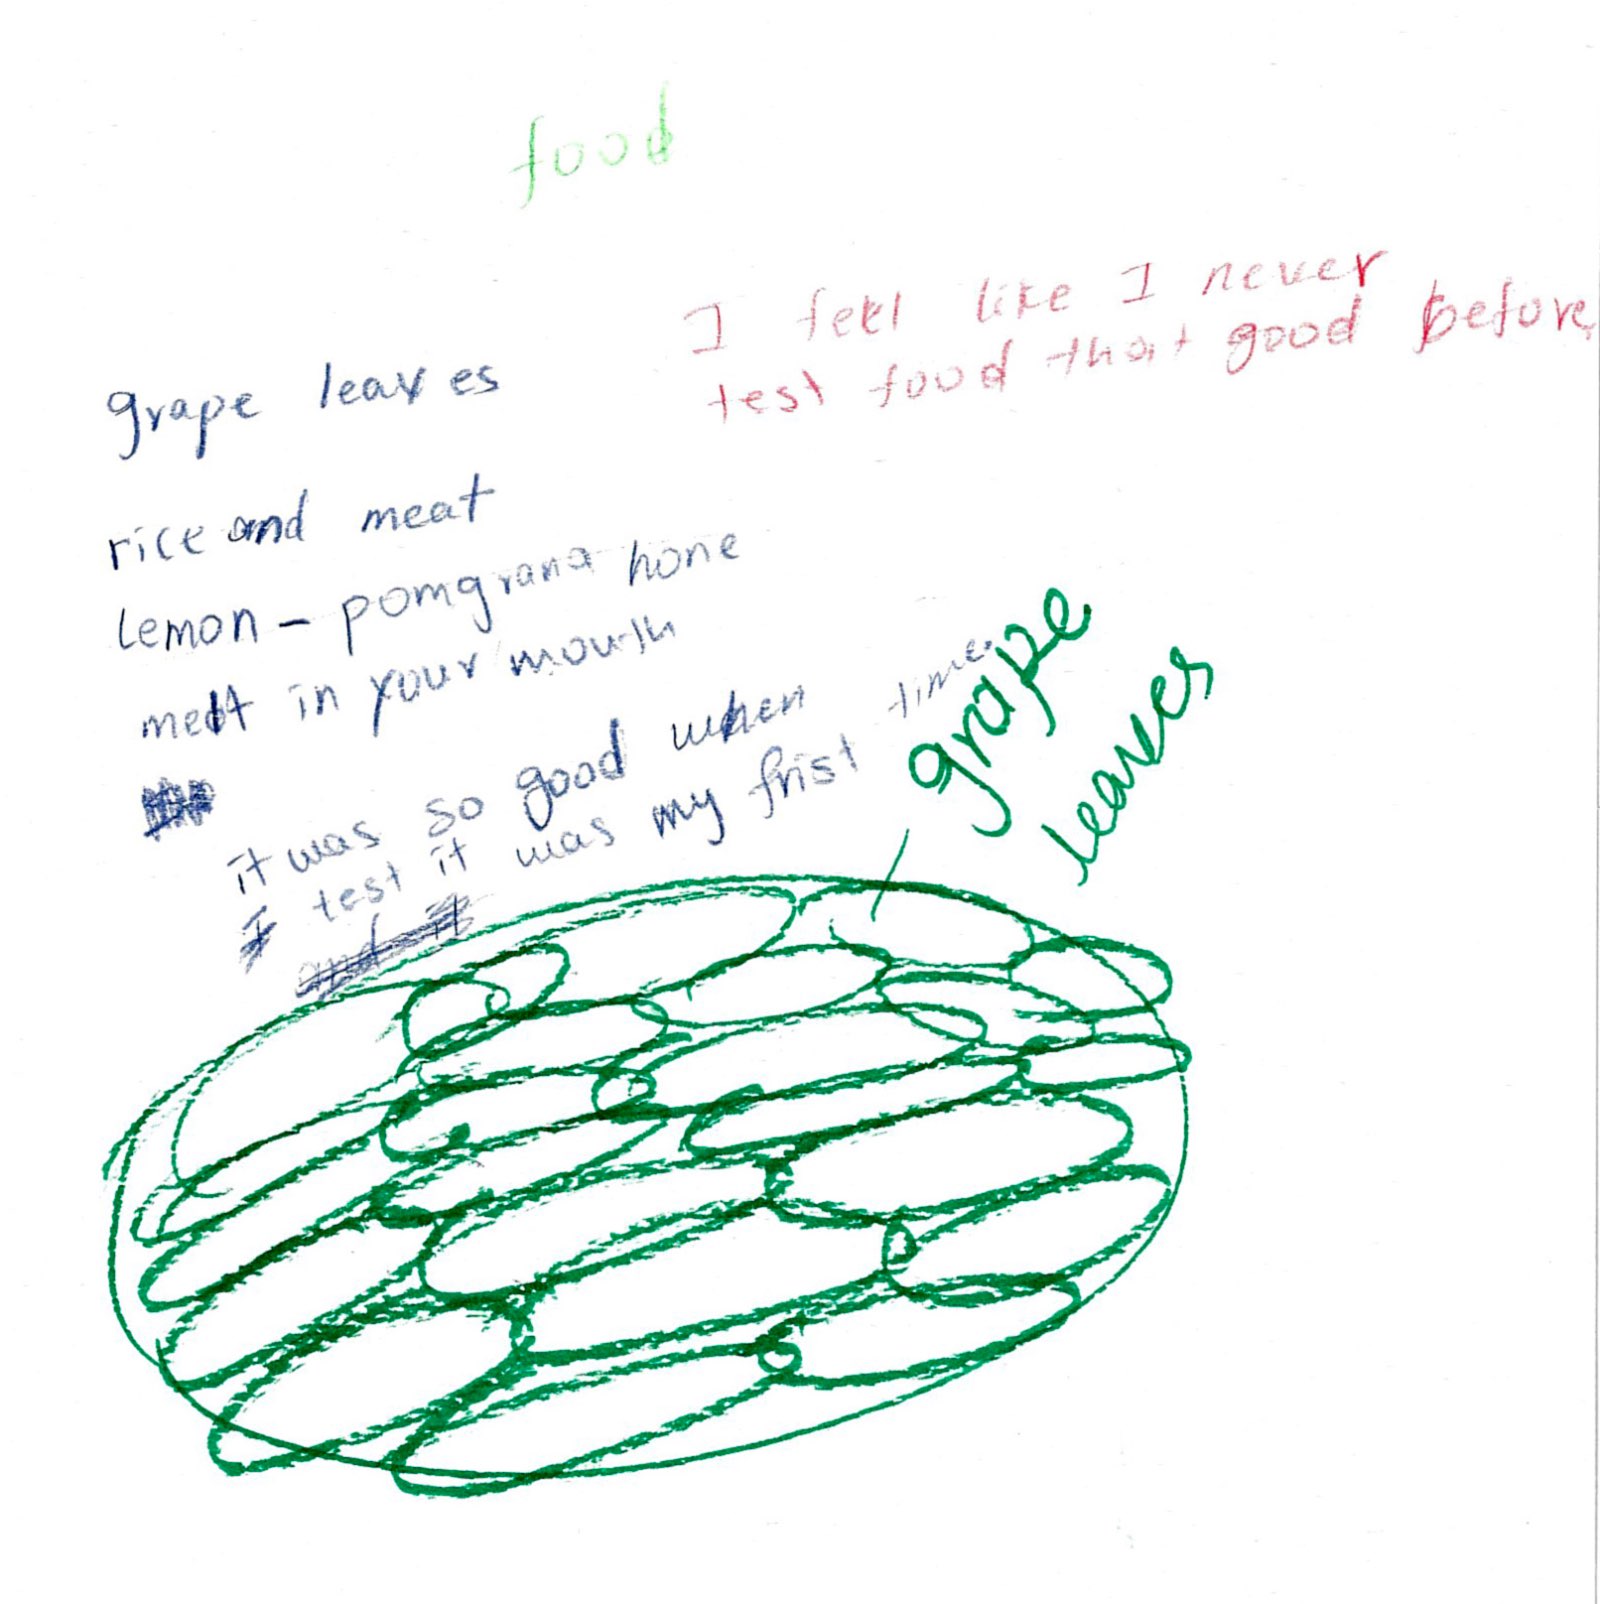 food
I feel like I never
test food that good before,
grape leaves
rice and meat
lemon - pomgrana hone
melt in your mouth
it was so good when
I test it was my frist time.
and it
grape
leaves